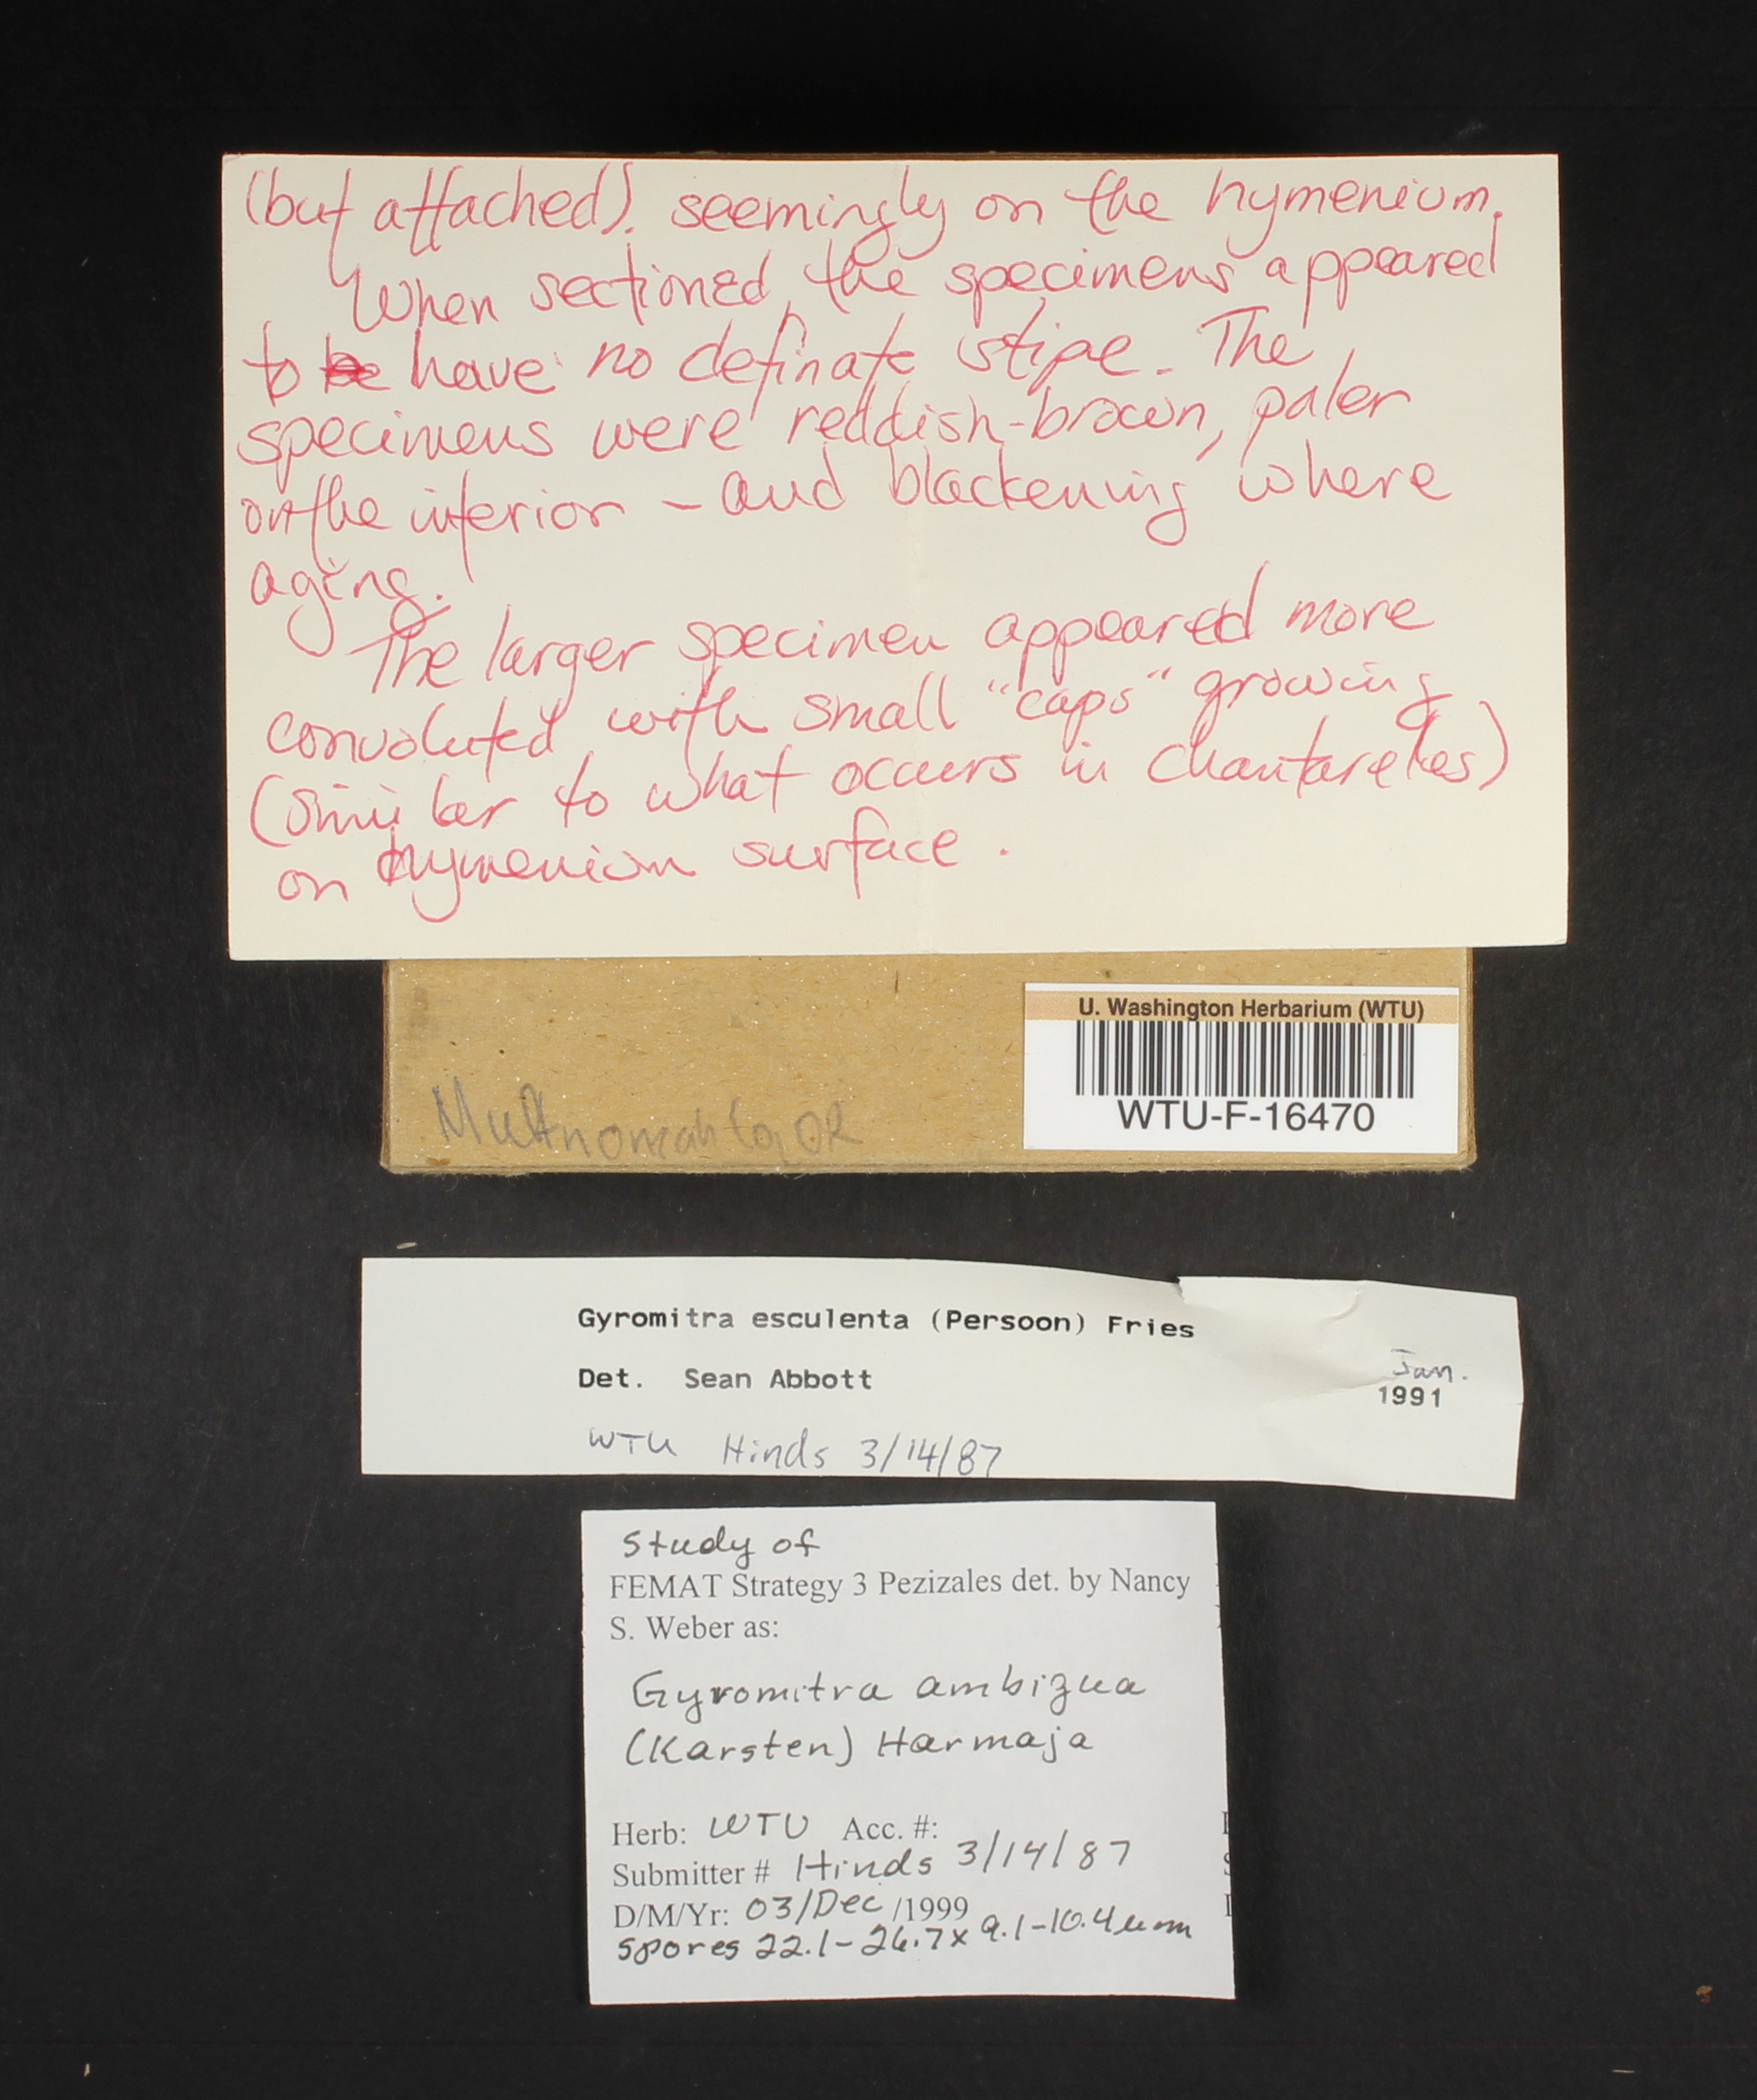 (but attached). seemingly on the hymenium.
When sectioned, the specimens appeared
to have no definate stipe. The
specimens were reddish-brown, paler
on the interior - and blackening where
aging.
The larger specimen appeared more
convoluted with small "caps" growing
(similar to what occurs in chantarelles)
on hymenium surface.
U. Washington Herbarium (WTU)
WTU-F-16470
Multnomah Co, OR
Gyromitra esculenta (Persoon) Fries
Det. Sean Abbott
Jan.
1991
WTU Hinds 3/14/87
Study of
FEMAT Strategy 3 Pezizales det. by Nancy
S. Weber as:
Gyromitra ambigua
(Karsten) Harmaja
Herb: WTU Acc. #:
Submitter # Hinds 3/14/87
D/M/Yr: 03/Dec/1999
spores 22.1-26.7 x 9.1-10.4 µm